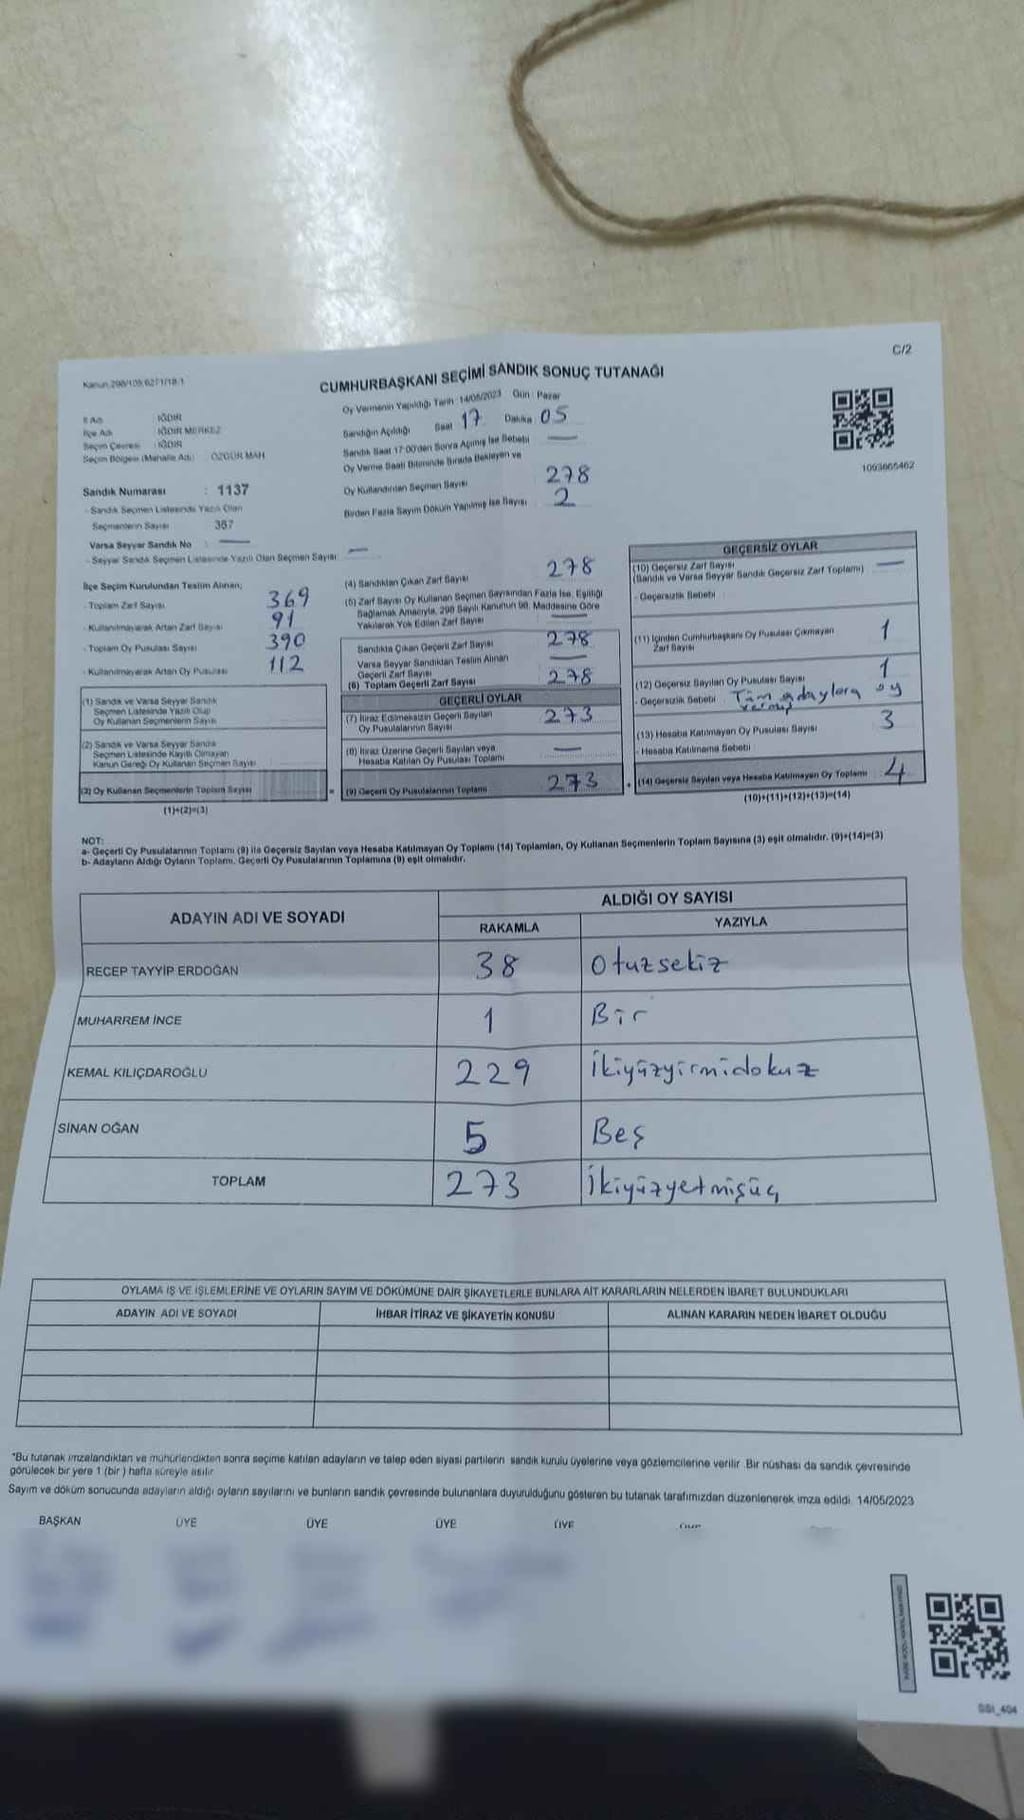 C/2
Kanun:298/105;6271/18;1
CUMHURBAŞKANI SEÇİMİ SANDIK SONUÇ TUTANAĞI
Oy Vermenin Yapıldığı Tarih : 14/05/2023 Gün : Pazar
Sandığın Açıldığı Saat 17 Dakika 05
Sandık Saat 17:00'den Sonra Açılmış İse Sebebi —
Oy Verme Saati Bitiminde Sırada Bekleyen ve
Oy Kullandırılan Seçmen Sayısı 278
Birden Fazla Sayım Döküm Yapılmış İse Sayısı 2
1093665462
İl Adı : IĞDIR
İlçe Adı : IĞDIR MERKEZ
Seçim Çevresi : IĞDIR
Seçim Bölgesi (Mahalle Adı) : ÖZGÜR MAH
Sandık Numarası : 1137
- Sandık Seçmen Listesinde Yazılı Olan
Seçmenlerin Sayısı 367
Varsa Seyyar Sandık No : —
- Seyyar Sandık Seçmen Listesinde Yazılı Olan Seçmen Sayısı : —
İlçe Seçim Kurulundan Teslim Alınan;
- Toplam Zarf Sayısı 369
- Kullanılmayarak Artan Zarf Sayısı 91
- Toplam Oy Pusulası Sayısı 390
- Kullanılmayarak Artan Oy Pusulası 112
(1) Sandık ve Varsa Seyyar Sandık
Seçmen Listesinde Yazılı Olup
Oy Kullanan Seçmenlerin Sayısı
(2) Sandık ve Varsa Seyyar Sandık
Seçmen Listesinde Kayıtlı Olmayan
Kanun Gereği Oy Kullanan Seçmen Sayısı
(3) Oy Kullanan Seçmenlerin Toplam Sayısı =
(1)+(2)=(3)
(4) Sandıktan Çıkan Zarf Sayısı 278
(5) Zarf Sayısı Oy Kullanan Seçmen Sayısından Fazla İse, Eşitliği
Sağlamak Amacıyla, 298 Sayılı Kanunun 98. Maddesine Göre
Yakılarak Yok Edilen Zarf Sayısı —
Sandıkta Çıkan Geçerli Zarf Sayısı 278
Varsa Seyyar Sandıktan Teslim Alınan
Geçerli Zarf Sayısı —
(6) Toplam Geçerli Zarf Sayısı 278
GEÇERLİ OYLAR
(7) İtiraz Edilmeksizin Geçerli Sayılan
Oy Pusulalarının Sayısı 273
(8) İtiraz Üzerine Geçerli Sayılan veya
Hesaba Katılan Oy Pusulası Toplamı —
(9) Geçerli Oy Pusulalarının Toplamı 273 +
GEÇERSİZ OYLAR
(10) Geçersiz Zarf Sayısı —
(Sandık ve Varsa Seyyar Sandık Geçersiz Zarf Toplamı)
- Geçersizlik Sebebi
(11) İçinden Cumhurbaşkanı Oy Pusulası Çıkmayan
Zarf Sayısı 1
(12) Geçersiz Sayılan Oy Pusulası Sayısı 1
- Geçersizlik Sebebi Tüm adaylara oy
vermiş
(13) Hesaba Katılmayan Oy Pusulası Sayısı 3
- Hesaba Katılmama Sebebi
(14) Geçersiz Sayılan veya Hesaba Katılmayan Oy Toplamı 4
(10)+(11)+(12)+(13)=(14)
NOT:
a- Geçerli Oy Pusulalarının Toplamı (9) ile Geçersiz Sayılan veya Hesaba Katılmayan Oy Toplamı (14) Toplamları, Oy Kullanan Seçmenlerin Toplam Sayısına (3) eşit olmalıdır. (9)+(14)=(3)
b- Adayların Aldığı Oyların Toplamı, Geçerli Oy Pusulalarının Toplamına (9) eşit olmalıdır.
ADAYIN ADI VE SOYADI
ALDIĞI OY SAYISI
RAKAMLA YAZIYLA
RECEP TAYYİP ERDOĞAN 38 Otuzsekiz
MUHARREM İNCE 1 Bir
KEMAL KILIÇDAROĞLU 229 İkiyüzyirmidokuz
SİNAN OĞAN 5 Beş
TOPLAM 273 İkiyüzyetmişüç
OYLAMA İŞ VE İŞLEMLERİNE VE OYLARIN SAYIM VE DÖKÜMÜNE DAİR ŞİKAYETLERLE BUNLARA AİT KARARLARIN NELERDEN İBARET BULUNDUKLARI
ADAYIN ADI VE SOYADI İHBAR İTİRAZ VE ŞİKAYETİN KONUSU ALINAN KARARIN NEDEN İBARET OLDUĞU
"Bu tutanak imzalandıktan ve mühürlendikten sonra seçime katılan adayların ve talep eden siyasi partilerin sandık kurulu üyelerine veya gözlemcilerine verilir. Bir nüshası da sandık çevresinde
görülecek bir yere 1 (bir ) hafta süreyle asılır
Sayım ve döküm sonucunda adayların aldığı oyların sayılarını ve bunların sandık çevresinde bulunanlara duyurulduğunu gösteren bu tutanak tarafımızdan düzenlenerek imza edildi. 14/05/2023
BAŞKAN ÜYE ÜYE ÜYE ÜYE
SSI_404